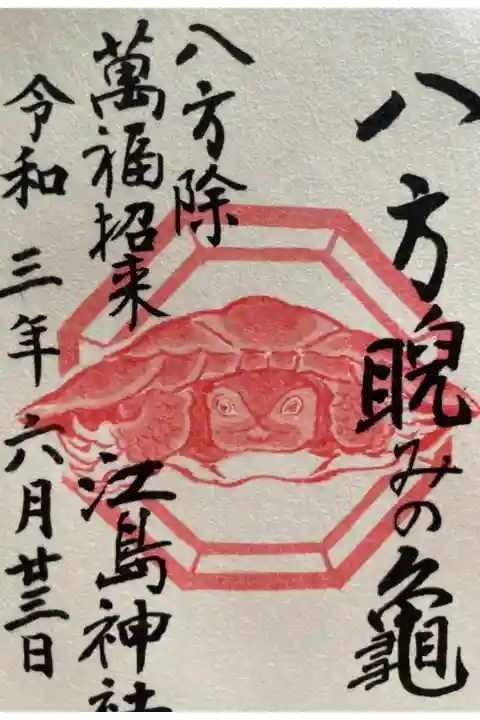 八方睨みの龜
八方除
萬福招来
江島神社
令和三年六月廿三日